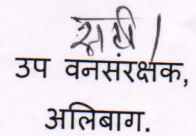 सही/
उप वनसंरक्षक,
अलिबाग.